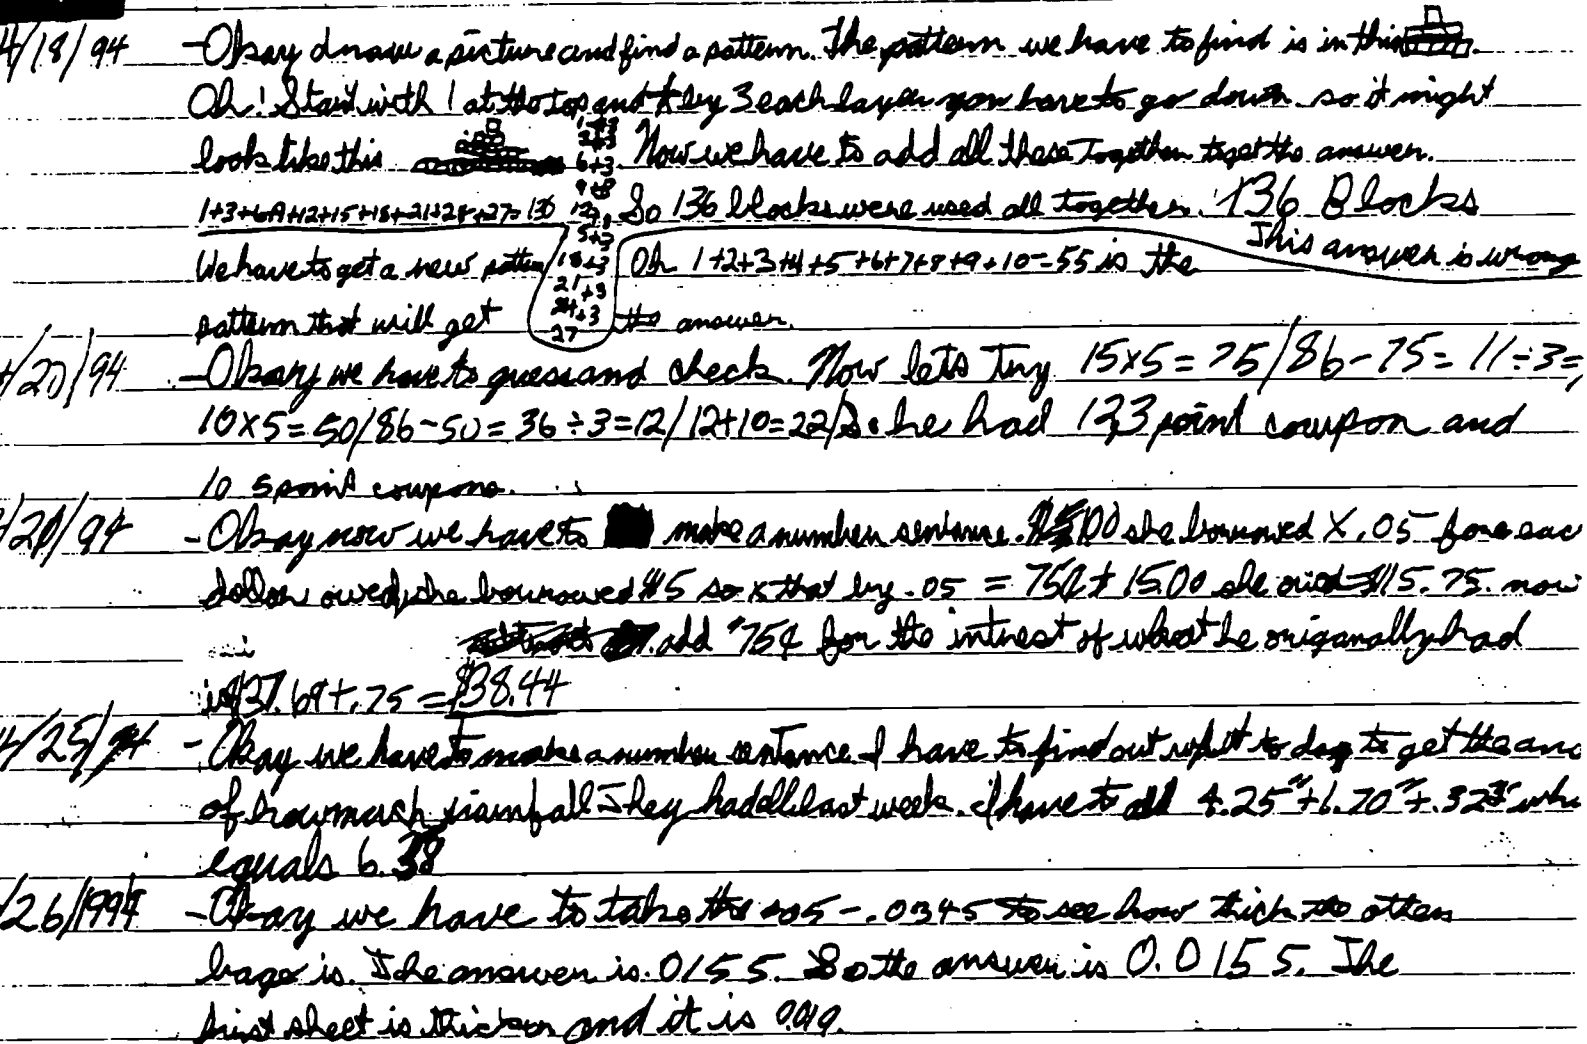 4/18/94 -Okay draw a picture and find a pattern. The pattern we have to find is in this
Oh! Start with 1 at the top and x by 3 each layer you have to go down so it might
look like this 1+3 3+3 6+3 Now we have to add all these together to get the answer.
1+3+6+9+12+15+18+21+24+27=136 9+3 12+3 So 136 blocks were used all together. 136 Blocks
This answer is wrong
We have to get a new pattern 15+3 18+3 21+3 Oh 1+2+3+4+5+6+7+8+9+10=55 is the
pattern that will get 24+3 27 the answer.
4/20/94 -Okay we have to guess and check. Now lets try 15x5=75/86-75=11÷3=
10x5=50/86-50=36÷3=12/12+10=22/So he had 12,3 point coupon and
10 5 point coupons.
/21/94 -Okay now we have to make a number sentence. she borrowed X .05 for eac
dollar owed, she borrowed $15 so x that by .05 = 75¢ + 15.00 she owed $15.75. now
add 75¢ for the intrest of what he origanally had
is $37.69+.75=$38.44
4/25/94 -Okay we have to make a number sentance I have to find out what to do to get the ans
of how much rainfall They had all last week. I have to add 4.25"+1.70"+.32 whi
equals 6.38
/26/1994 -Okay we have to take the .05-.0345 to see how thick the other
bage is. The answer is .0155. So the answer is 0.0155. The
first sheet is thicker and it is 0.019.